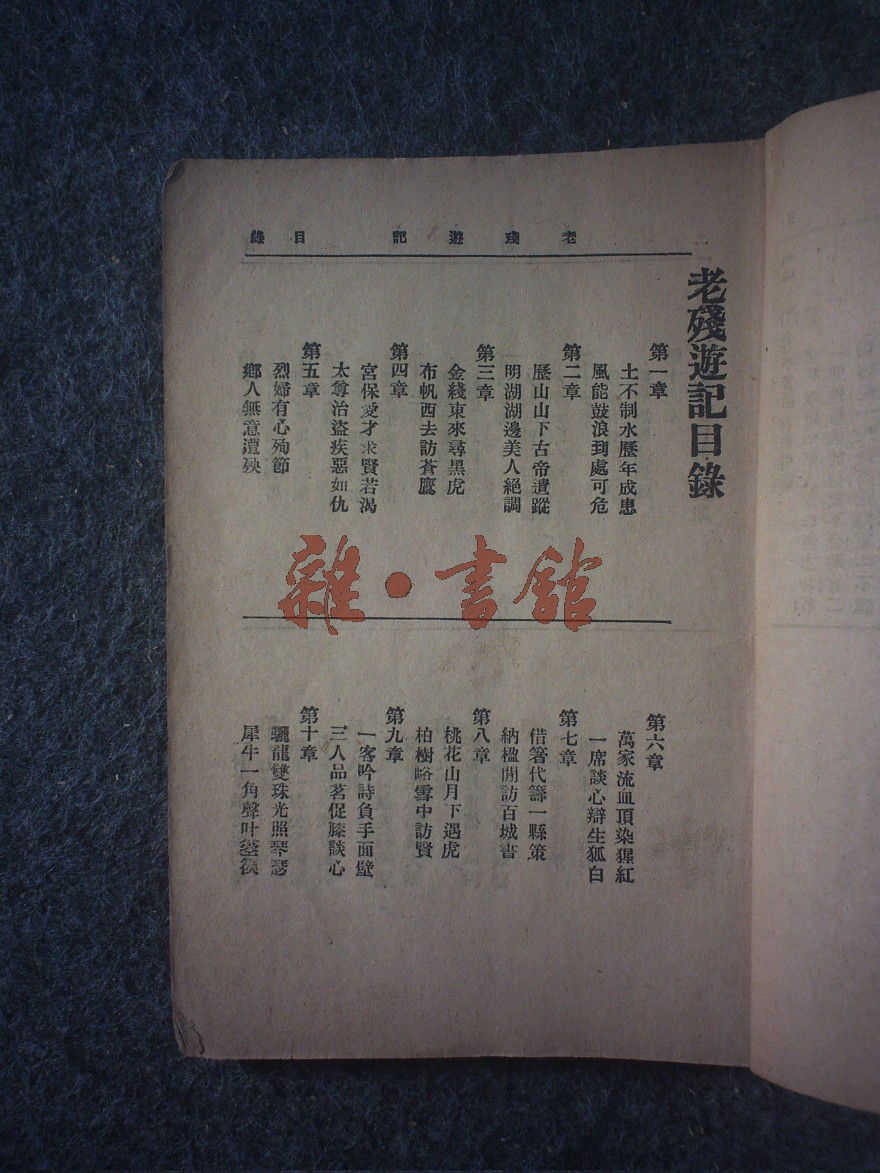 老殘遊記 目錄
老殘遊記目錄
第一章
土不制水歷年成患
風能鼓浪到處可危
第二章
歷山山下古帝遺蹤
明湖湖邊美人絕調
第三章
金綫東來尋黑虎
布帆西去訪蒼鷹
第四章
宮保愛才求賢若渴
太尊治盜疾惡如仇
第五章
烈婦有心殉節
鄉人無意遭殃
第六章
萬家流血頂染猩紅
一席談心辯生狐白
第七章
借箸代籌一縣策
納楹閒訪百城書
第八章
桃花山月下遇虎
柏樹峪雪中訪賢
第九章
一客吟詩負手面壁
三人品茗促膝談心
第十章
驪龍雙珠光照琴瑟
犀牛一角聲叶箜篌
雜·書館